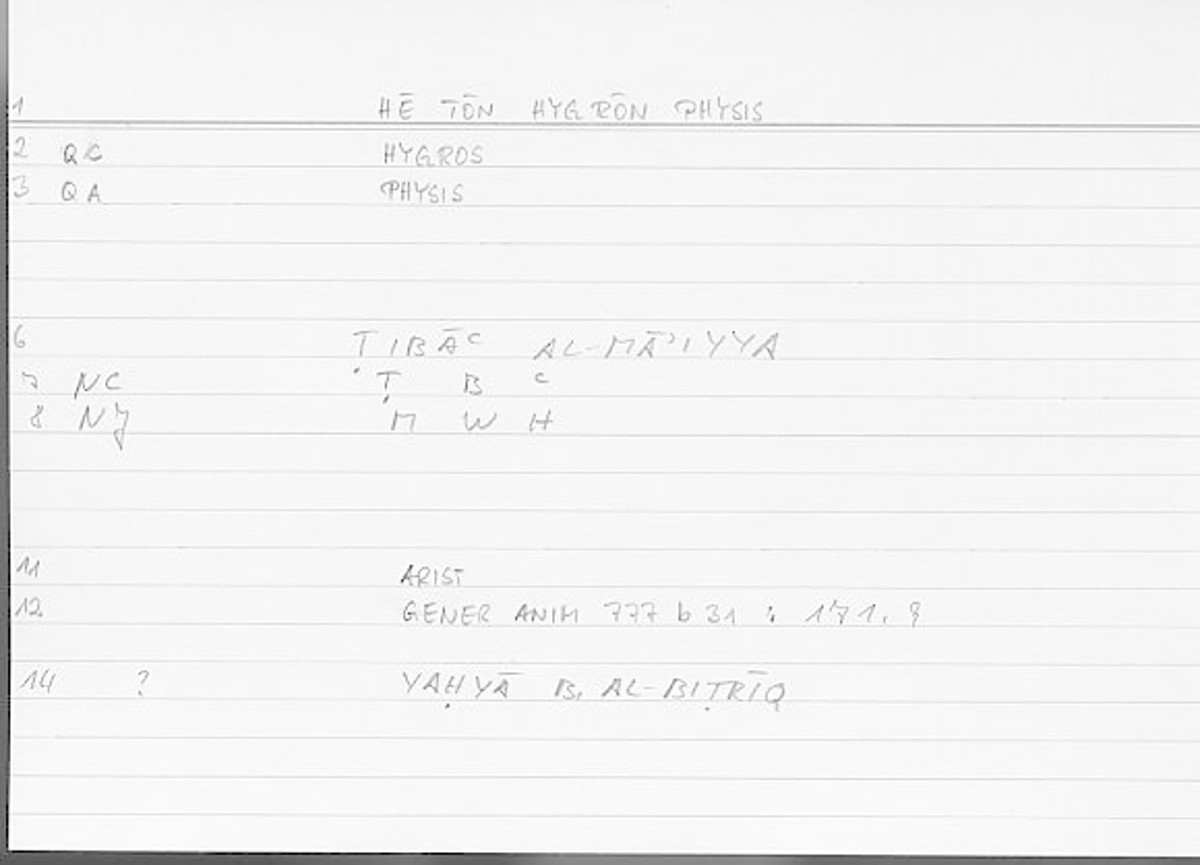 1 HĒ TŌN HYGRŌN PHYSIS
2 QC HYGROS
3 QA PHYSIS
6 ṬIBĀᶜ AL-MĀʾIYYA
7 NC Ṭ B ᶜ
8 NJ M W H
11 ARIST
12 GENER ANIM 777 b 31 : 171. 9
14 ? YAḤYĀ B. AL-BIṬRĪQ